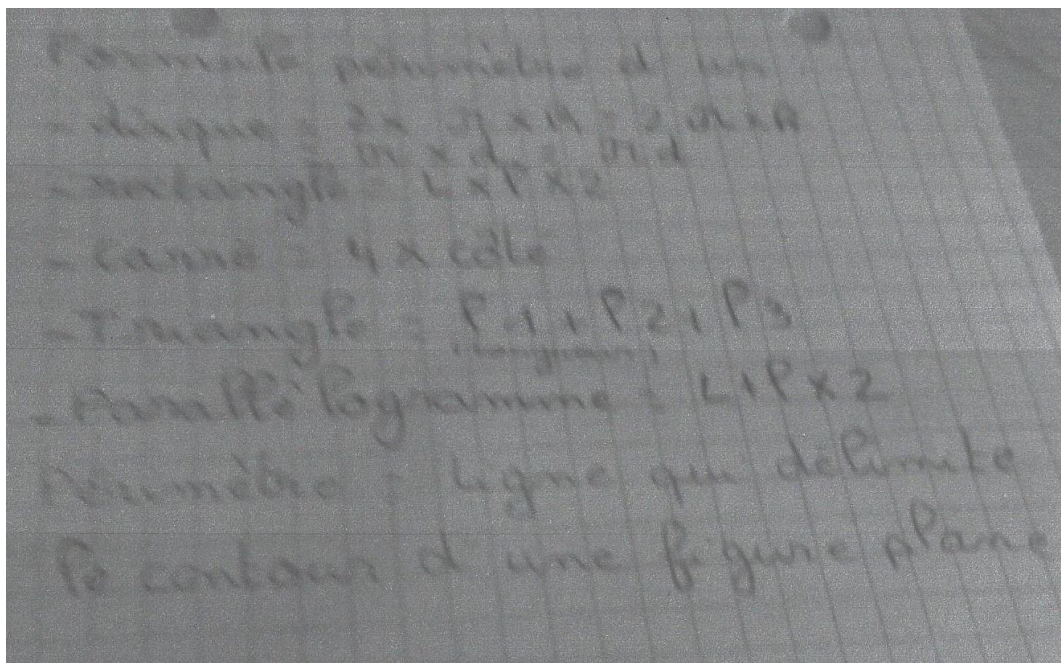 Formule périmètre d'un
- disque = 2 x π x R = 2 π x R
= π x d = π d
- rectangle = L x l x 2
- Carré = 4 x côté
- Triangle = l 1 + l 2 + l 3
- Parallélogramme = L + l x 2
Périmètre = ligne qui délimite
le contour d'une figure plane